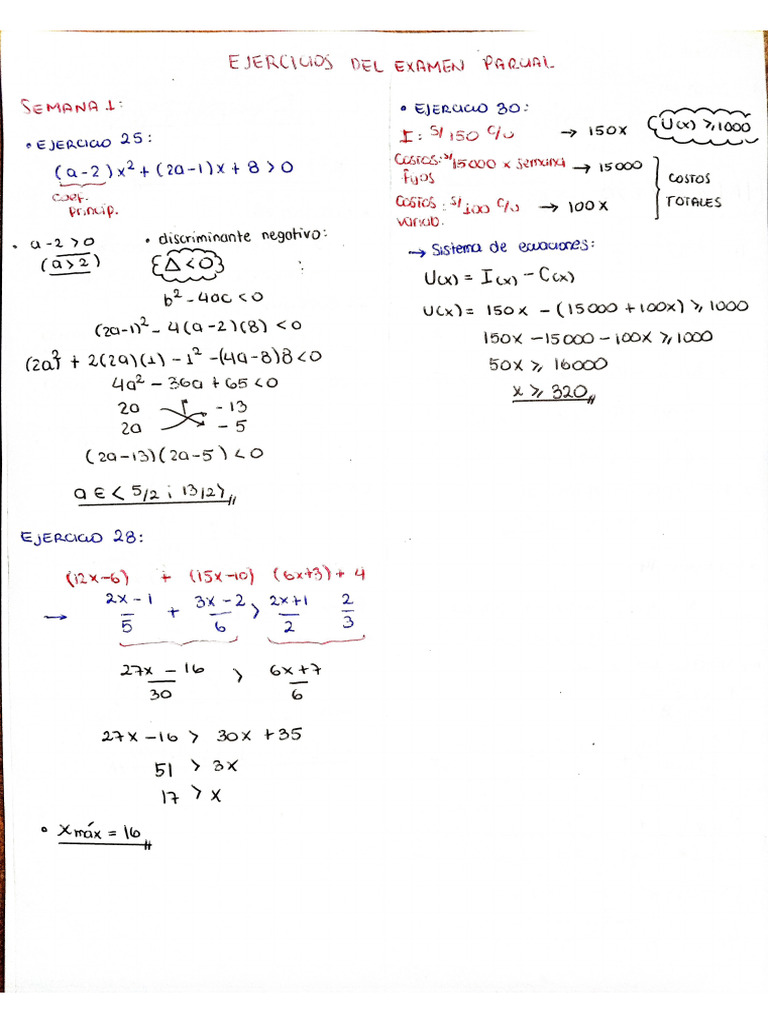 EJERCICIOS DEL EXAMEN PARCIAL
SEMANA 1:
• EJERCICIO 25:
(a-2)x² + (2a-1)x + 8 > 0
coef.
princip.
• a-2 > 0
(a > 2)
• discriminante negativo:
{Δ < 0}
b² - 4ac < 0
(2a-1)² - 4(a-2)(8) < 0
(2a)² + 2(2a)(1) - 1² - (4a-8)8 < 0
4a² - 36a + 65 < 0
2a - 13
2a - 5
(2a-13)(2a-5) < 0
a ∈ < 5/2 ; 13/2 >
EJERCICIO 28:
(12x-6) + (15x-10) (6x+3) + 4
→ 2x-1/5 + 3x-2/6 > 2x+1/2 2/3
27x - 16/30 > 6x+7/6
27x - 16 > 30x + 35
51 > 3x
17 > x
• x máx = 16
• EJERCICIO 30:
I: S/150 c/u → 150x
{U(x) ≥ 1000
Costos: S/15000 x semana → 15000
fijos
COSTOS
TOTALES
Costos: S/100 c/u → 100x
variab.
→ Sistema de ecuaciones:
U(x) = I(x) - C(x)
U(x) = 150x - (15000 + 100x) ≥ 1000
150x - 15000 - 100x ≥ 1000
50x ≥ 16000
x ≥ 320